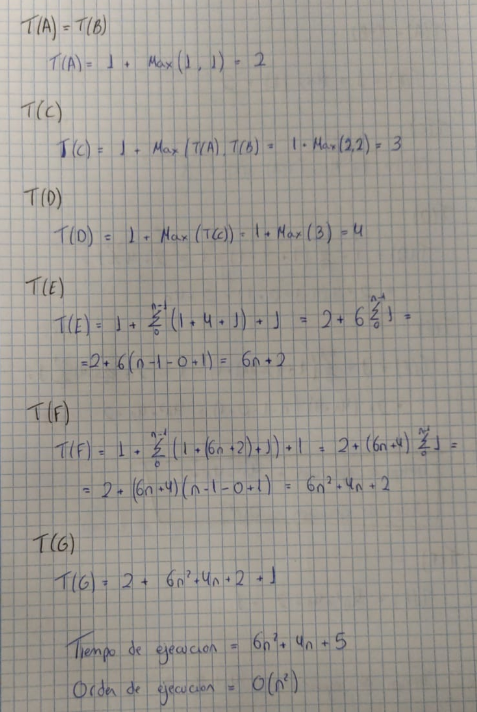 T(A) = T(B)
T(A) = 1 + Max(1, 1) = 2
T(C)
T(C) = 1 + Max(T(A), T(B)) = 1 + Max(2,2) = 3
T(D)
T(D) = 1 + Max(T(C)) = 1 + Max(3) = 4
T(E)
T(E) = 1 + Σ₀ⁿ⁻¹ (1 + 4 + 1) + 1 = 2 + 6 Σ₀ⁿ⁻¹ 1 =
= 2 + 6(n-1-0+1) = 6n + 2
T(F)
T(F) = 1 + Σ₀ⁿ⁻¹ (1 + (6n+2) + 1) + 1 = 2 + (6n+4) Σ₀ⁿ⁻¹ 1 =
= 2 + (6n+4)(n-1-0+1) = 6n² + 4n + 2
T(G)
T(G) = 2 + 6n² + 4n + 2 + 1
Tiempo de ejecucion = 6n² + 4n + 5
Orden de ejecucion = O(n²)